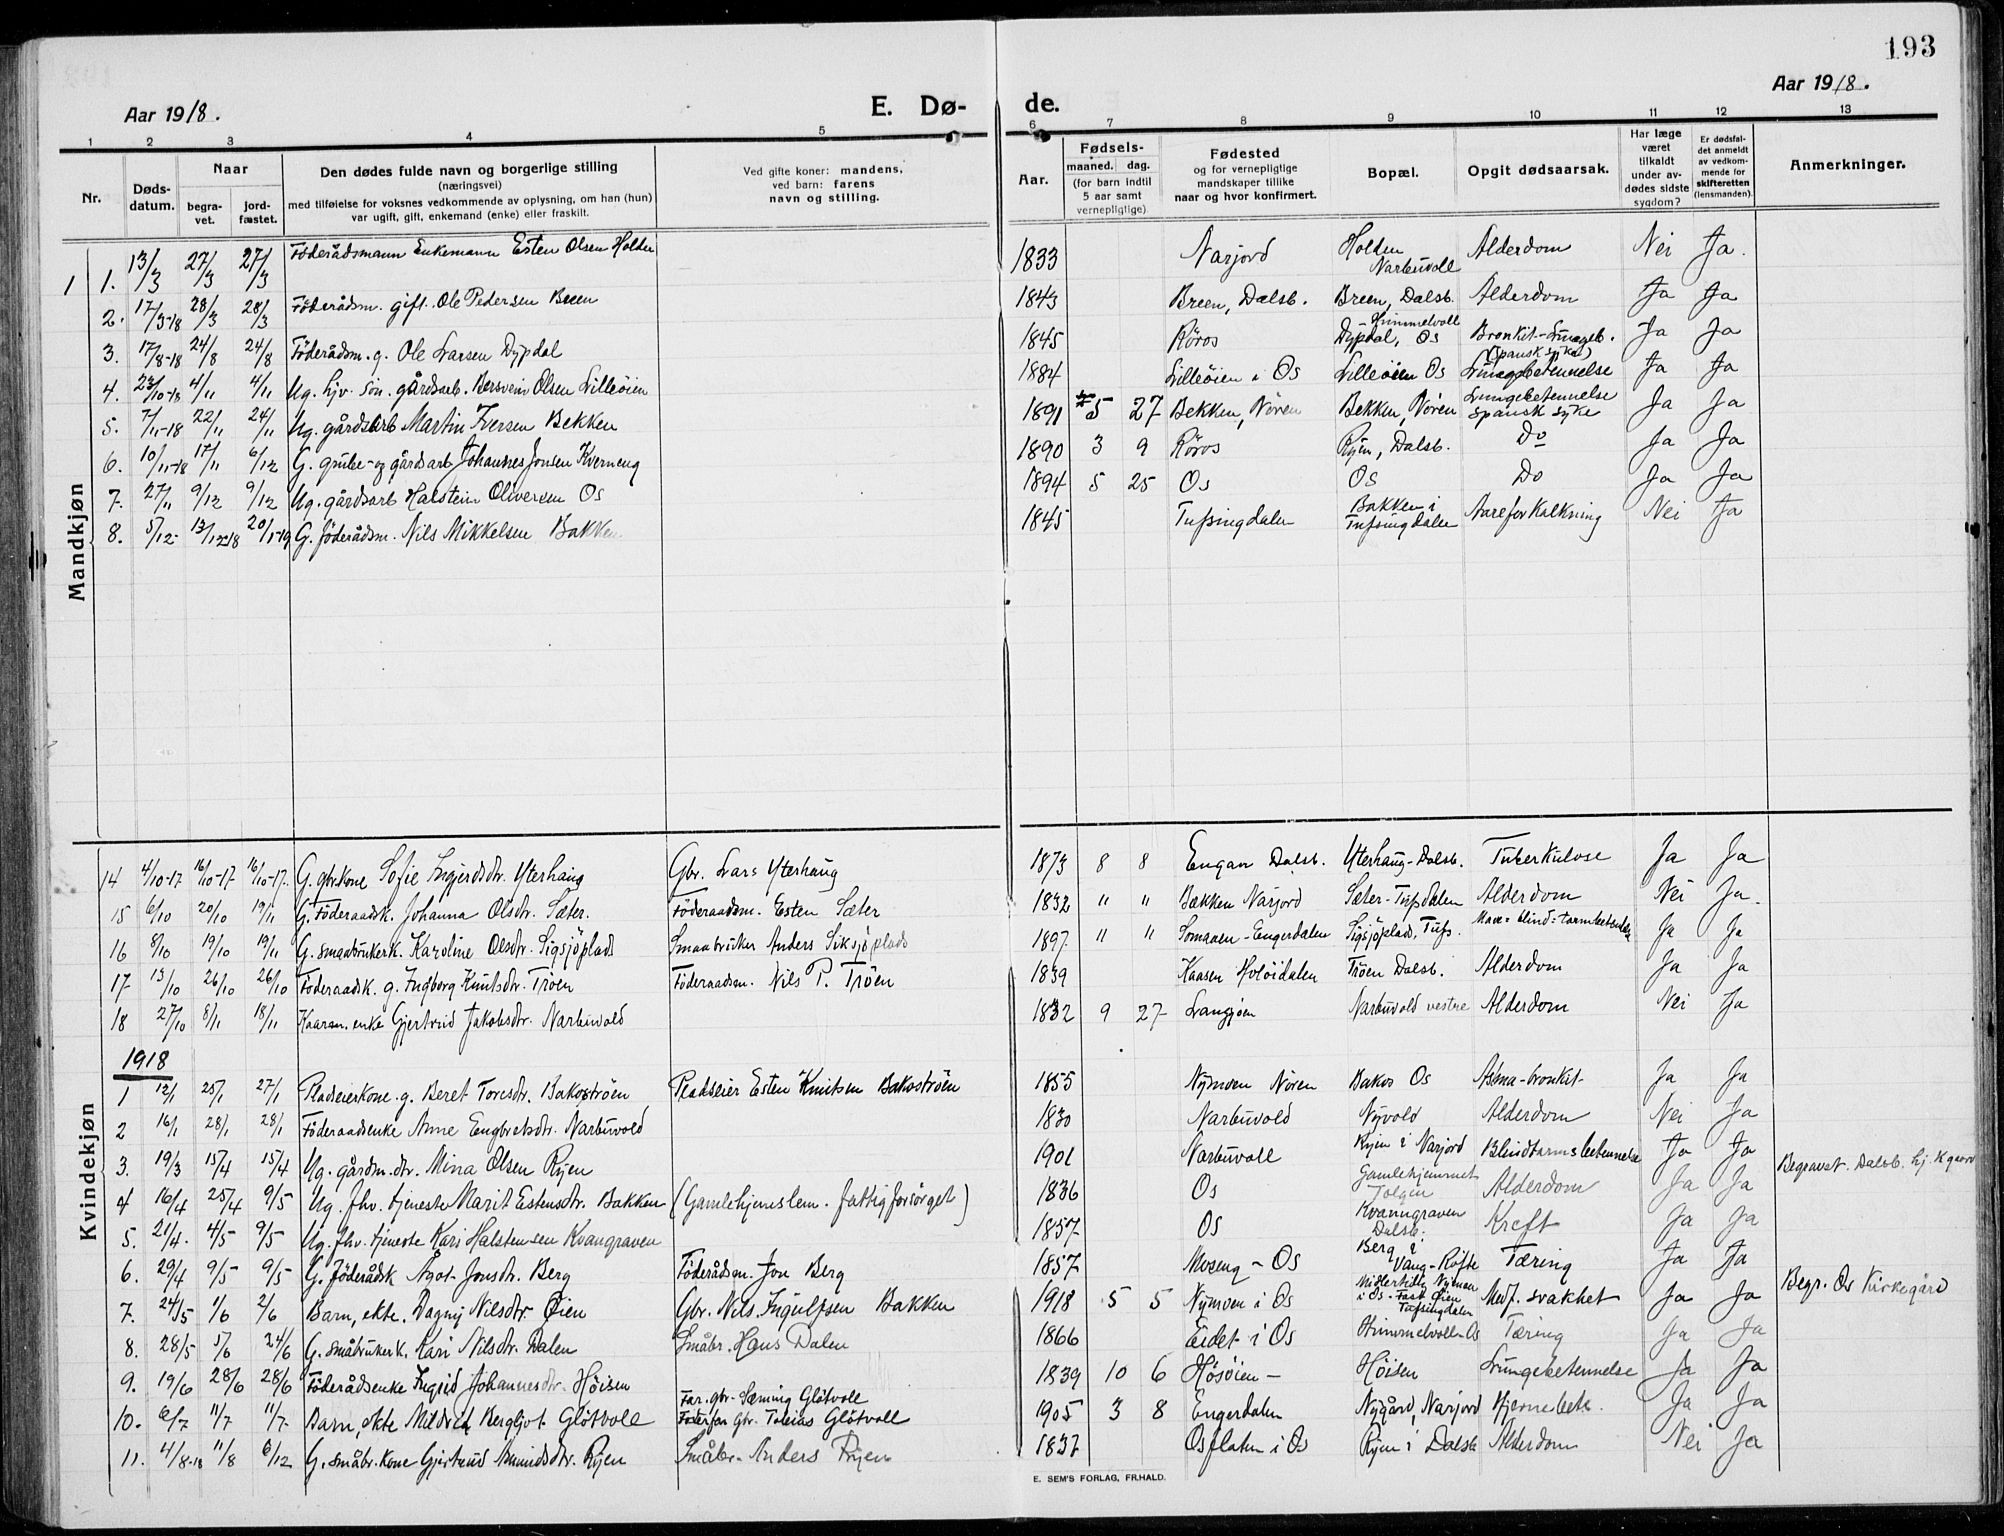 193
Aar 1918.
E. Dø-
de.
Aar 1918.
1 2 3 4 5 6 7 8 9 10 11 12 13
Nr.
Døds-datum.
Naar
begra-vet.
jord-fæstet.
Den dødes fulde navn og borgerlige stilling
(næringsvei)
med tilføielse for voksnes vedkommende av oplysning, om han (hun)
var ugift, gift, enkemand (enke) eller fraskilt.
Ved gifte koner: mandens,
ved barn: farens
navn og stilling.
Aar.
Fødsels-
maaned. dag.
(for barn indtil
5 aar samt
vernepligtige)
Fødested
og for vernepligtige
mandskaper tillike
naar og hvor konfirmert.
Bopæl.
Opgit dødsaarsak.
Har læge
været
tilkaldt
under av-
dødes sidste
sygdom?
Er dødsfal-
det anmeldt
av vedkom-
mende for
skifteretten
(lensmanden).
Anmerkninger.
Mandkjøn
1 1. 13/3 27/3 27/3 Föderådsmann Enkemann Esten Olsen Holden 1833 Narjord Holden Narbuvoll Alderdom Nei Ja.
2. 17/3-18 28/3 28/3 Föderådsm. gift. Ole Pedersen Breen 1843 Breen, Dalsb. Breen, Dalsb. Alderdom Ja Ja
3. 17/8-18 24/8 24/8 Föderådsm. g. Ole Larsen Dypdal 1845 Röros Himmelvoll Dypdal, Os Bronkit-Lungeb. Ja Ja
4. 23/10-18 4/11 4/11 Ug. hjv. sön. gårdsarb. Bersvein Olsen Lilleöien 1884 Lilleöien i Os Lilleöien Os (Spansk syke) Lungebetennelse Ja Ja
5. 7/11-18 22/11 24/11 Ug. gårdsarb Martin Iversen Bekken 1891 5 27 Bekken, Nören Bekken, Nören Lungebetennelse spansk syke Ja Ja
6. 10/11-18 17/11 6/12 G. grube- og gårdsarb Johannes Jonsen Kverneng 1890 3 9 Röros Ryen, Dalsb. Do Ja Ja
7. 27/11 9/12 9/12 Ug. gårdsarb Halstein Oliversen Os 1894 5 25 Os Os Do Ja Ja
8. 5/12- 13/12-18 20/1-19 G. föderådsm. Nils Mikkelsen Bakken 1845 Tufsingdalen Bakken i Tufsingdalen Aareforkalkning Nei Ja
Kvindekjøn
14 4/10-17 16/10-17 16/10-17. G. gbrkone Sofie Ingerdsdtr. Yterhaug Gbr. Lars Yterhaug 1873 8 8 Engan Dalsb. Yterhaug-Dalsb. Tuberkulose Ja Ja
15 6/10 20/10 19/11 G. Föderaadsk. Johanna Olsdtr. Sæter. Föderaadsm. Esten Sæter 1832 " " Bækken Narjord Sæter-Tufsdalen Alderdom Nei Ja.
16 8/10 19/10 19/11 G. smaabrukerk. Karoline Olsdtr. Sigsjöplads Smaabruker Anders Siksjöplads 1897. " " Somaaen-Engerdalen Sigsjöplads, Tufs. Mave= blind= Ja Ja
17 13/10 26/10 26/10 Föderaadsk. g. Ingborg Knutsdtr. Tröen Föderaadsm. Nils P. Tröen 1839 Kaasen Holöidalen Tröen Dalsb. Alderdom Ja Ja
18 27/10 8/11 18/11 Kaarm. enke Gjertrud Jakobsdtr. Narbuvold 1832 9 27 Langjöen Narbuvold vestre Alderdom Nei Ja
1918
1 12/1 25/1 27/1 Pladseierkone. g. Beret Toresdtr. Bakoströen Pladseier Esten Knutsen Bakoströen 1855 Nymoen Nören Bakos Os Asma-bronkit- Ja Ja
2 16/1 28/1 28/1 Föderaadsenke Anne Engbretsdtr. Narbuvold 1830 Narbuvold Nyvold Alderdom Nei Ja
3. 19/3 15/4 15/4 Ug. gårdm. dtr. Mina Olsen Ryen 1901 Narbuvoll Ryen i Narjord Blindtarmsbetennelse Ja Ja Begravet. Dalsb. kj. kgaard
4 16/4 25/4 9/5 Ug. fhv. tjeneste Marit Estensdtr. Bakken (Gamlehjemslem. fattigforsörget) 1836 Os Gamlehjemmet Tolgen Alderdom Ja Ja
5. 21/4. 4/5 9/5 Ug. fhv. tjeneste Kari Halstensen Kvangraven 1857. Os Kvanngraven Dalsb. Kreft Ja Ja
6. 29/4 9/5 9/5 G. föderådsk Ågot Jonsdtr. Berg Föderådsm. Jon Berg 1857 Moseng - Os Berg i Vang-Röfte Tæring Ja Ja
7. 24/5 1/6 2/6 Barn, ekte. Dagny Nilsdtr Öien Gbr. Nils Ingulfsen Bakken 1918 5 5 Nymoen i Os Midlertidig Nymoen i Os - Fast Öien Tufsingdalen Medf. svakhet Ja Ja Begr. Os Kirkegård
8. 28/5 5/6 24/6 G. småbrukerk. Kari Nilsdtr. Dalen Småbr. Hans Dalen 1866 Eidet i Os Himmelvoll-Os Tæring Ja Ja
9. 19/6 28/6 28/6 Föderådsenke Ingrid Johannesdtr. Höisen 1839 10 6 Hösöien - Höisen Lungebetennelse Ja Ja
10. 2/7 11/7 11/7. Barn, ekte Mildrid Bergljot Glötvoll Far. gbr. Sæming Glötvoll Fosterfar Gbr. Tobias Glötvoll 1905 3 8 Engerdalen Nygård, Narjord Hjernebetn. Ja Ja
11. 4/8-18 11/8 6/12 G. småbr. kone Gjertrud Amundsdtr. Ryen Småbr. Anders Ryen 1837 Osflaten i Os Ryen i Dalsb Alderdom Nei Ja
E. SEM'S FORLAG, FR.HALD.